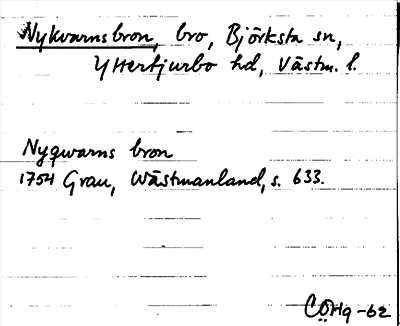 Nykvarnsbron, bro, Björksta sn,
Yttertjurbo hd, Västm. l.
Nyqwarns bron
1754 Grau, Wästmanland, s. 633.
-62